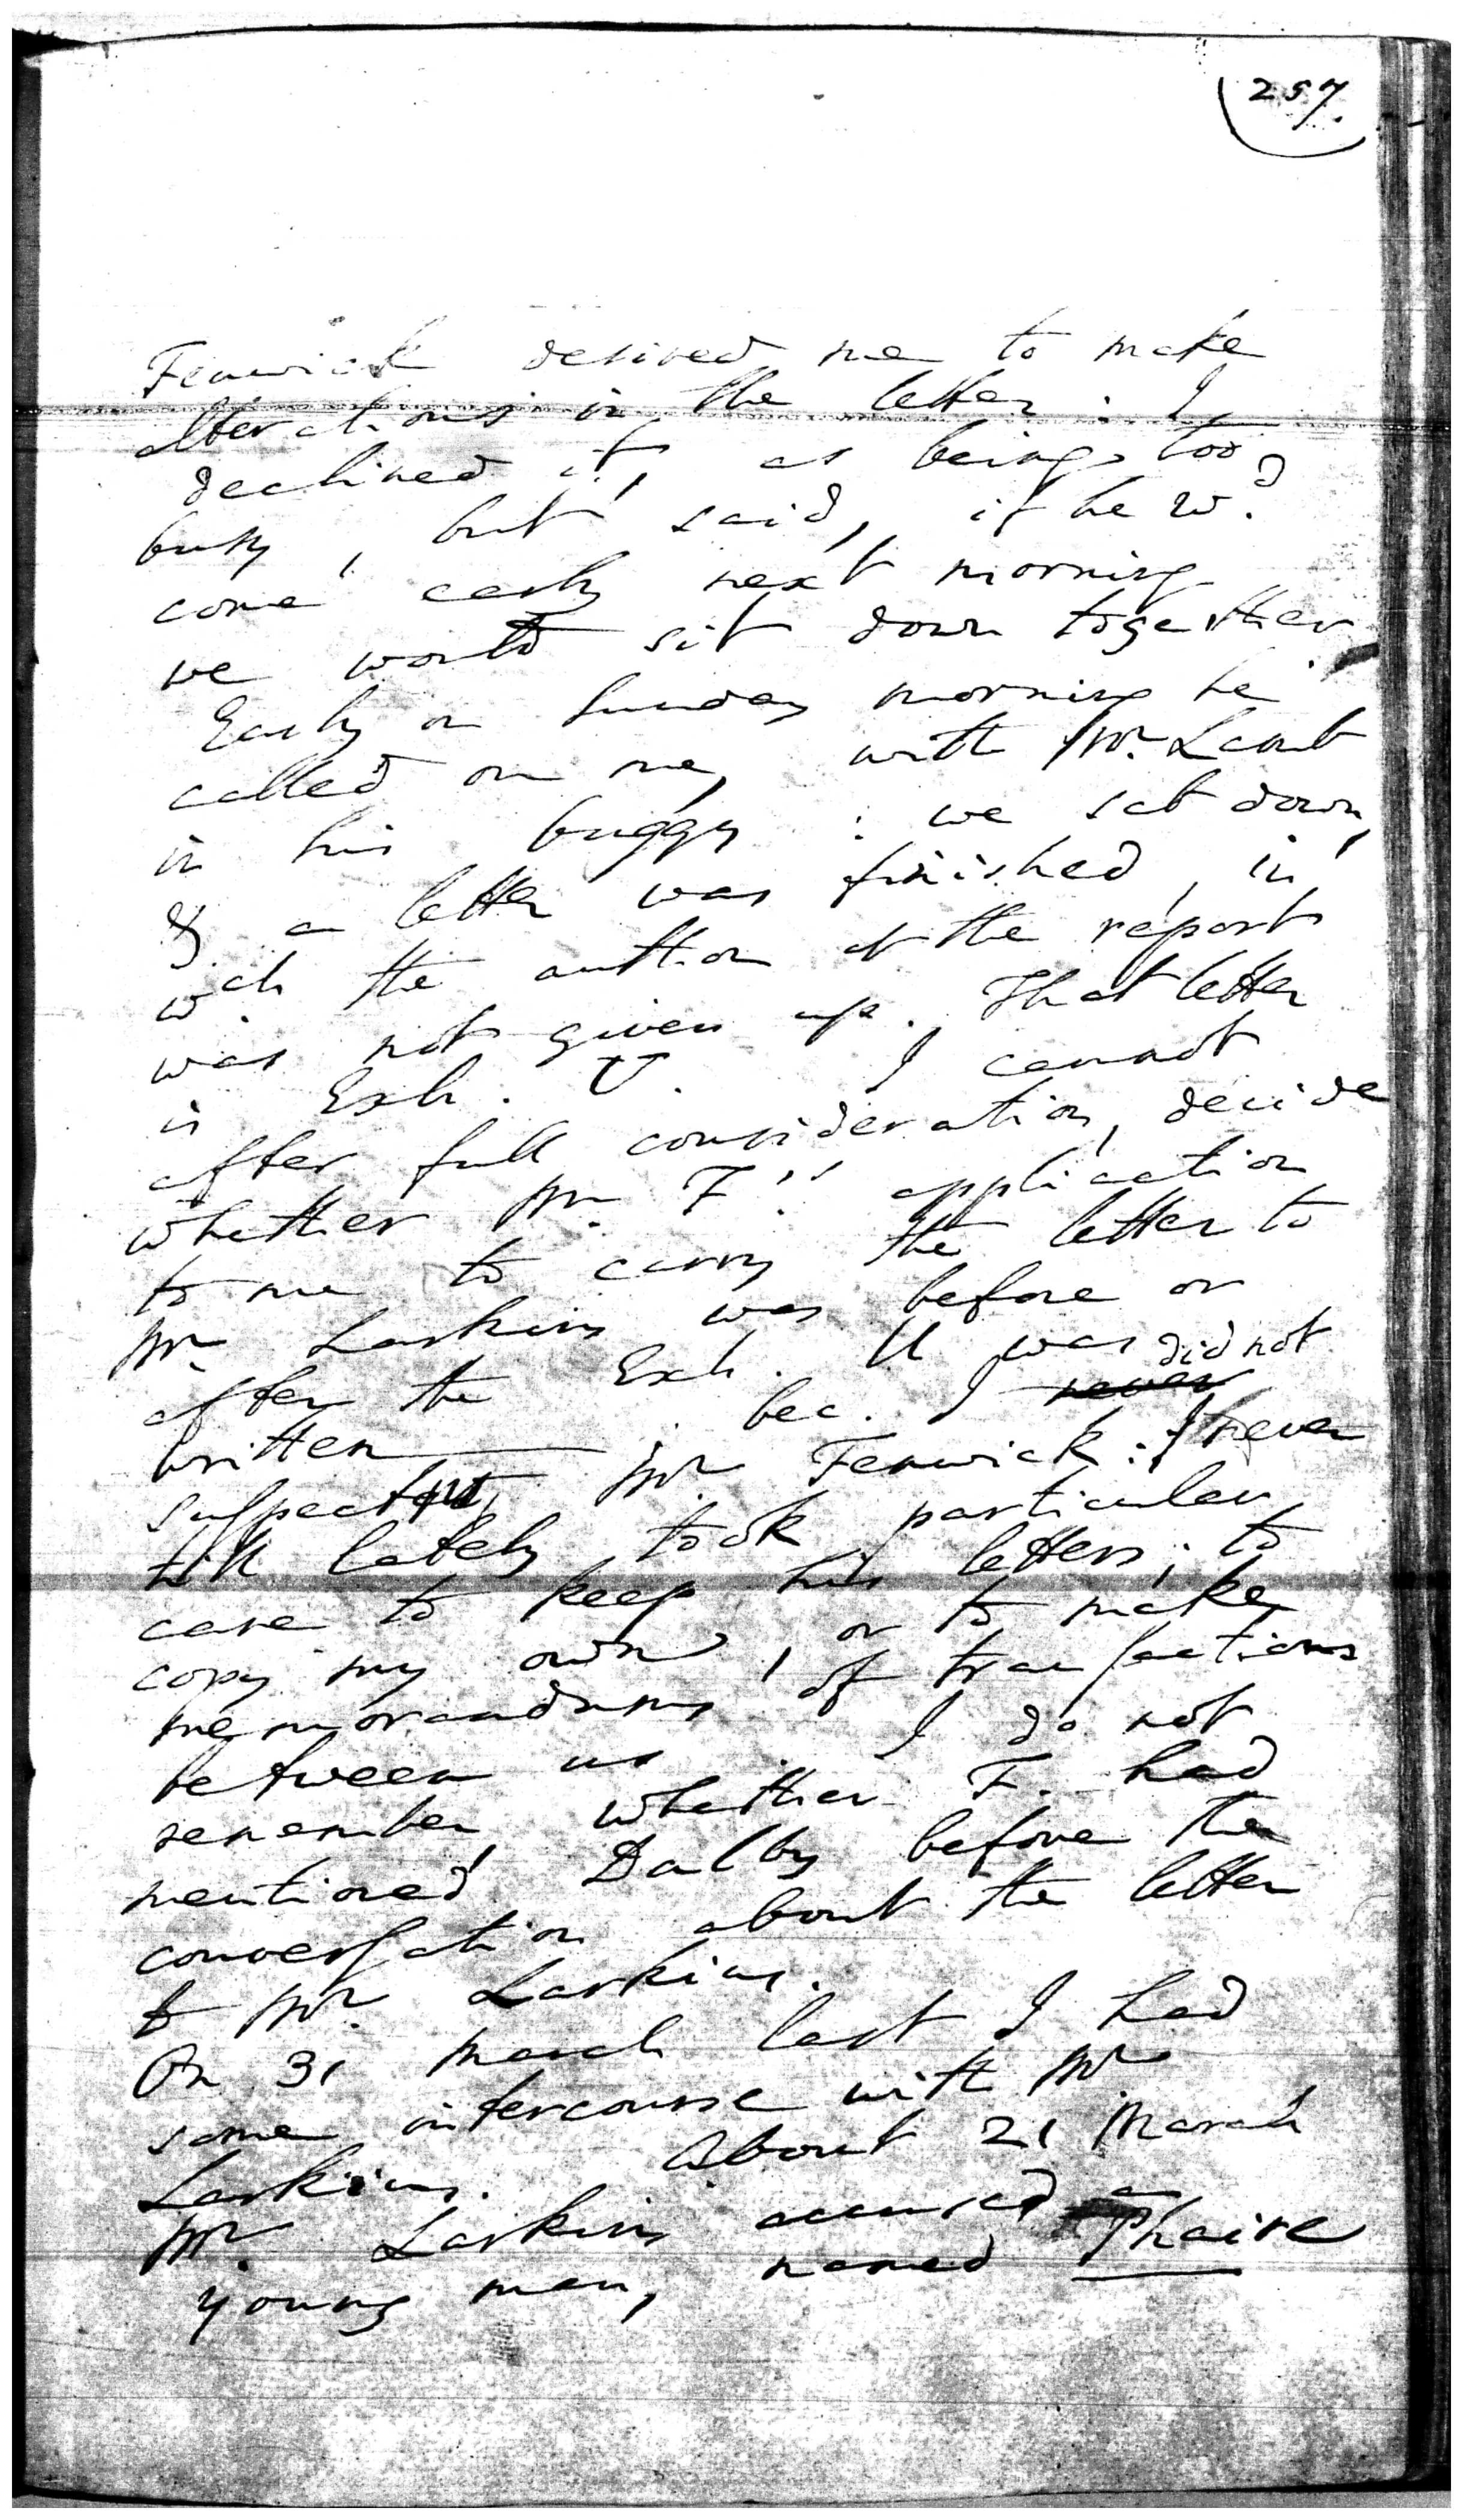 257.
Fenwick desired me to make
alterations in the letter: I
declined it, as being too
busy, but said, if he wd.
come early next morning
we would sit down together
Early on Sunday morning he
called on me, with Mr. Lambt
in his buggy: we sat down,
& a letter was finished, in
wch. the author of the report
was not given up. That letter
is Exh. U. I cannot
after full consideration, decide
whether Mr. F's application
to me to carry the letter to
Mr. Larkins was before or
after the Exh. U was
written bec. I never did not
suspect Mr. Fenwick: I never
till lately took particular
care to keep his letters; to
copy my own, or to make
memorandums of transactions
between us. I do not
remember whether F. had
mentioned Dalby before the
conversation about the letter
to Mr. Larkins.
On 31 March last I had
some intercourse with Mr
Larkins. About 21 March
Mr. Larkins accused a
young man, named Phaire